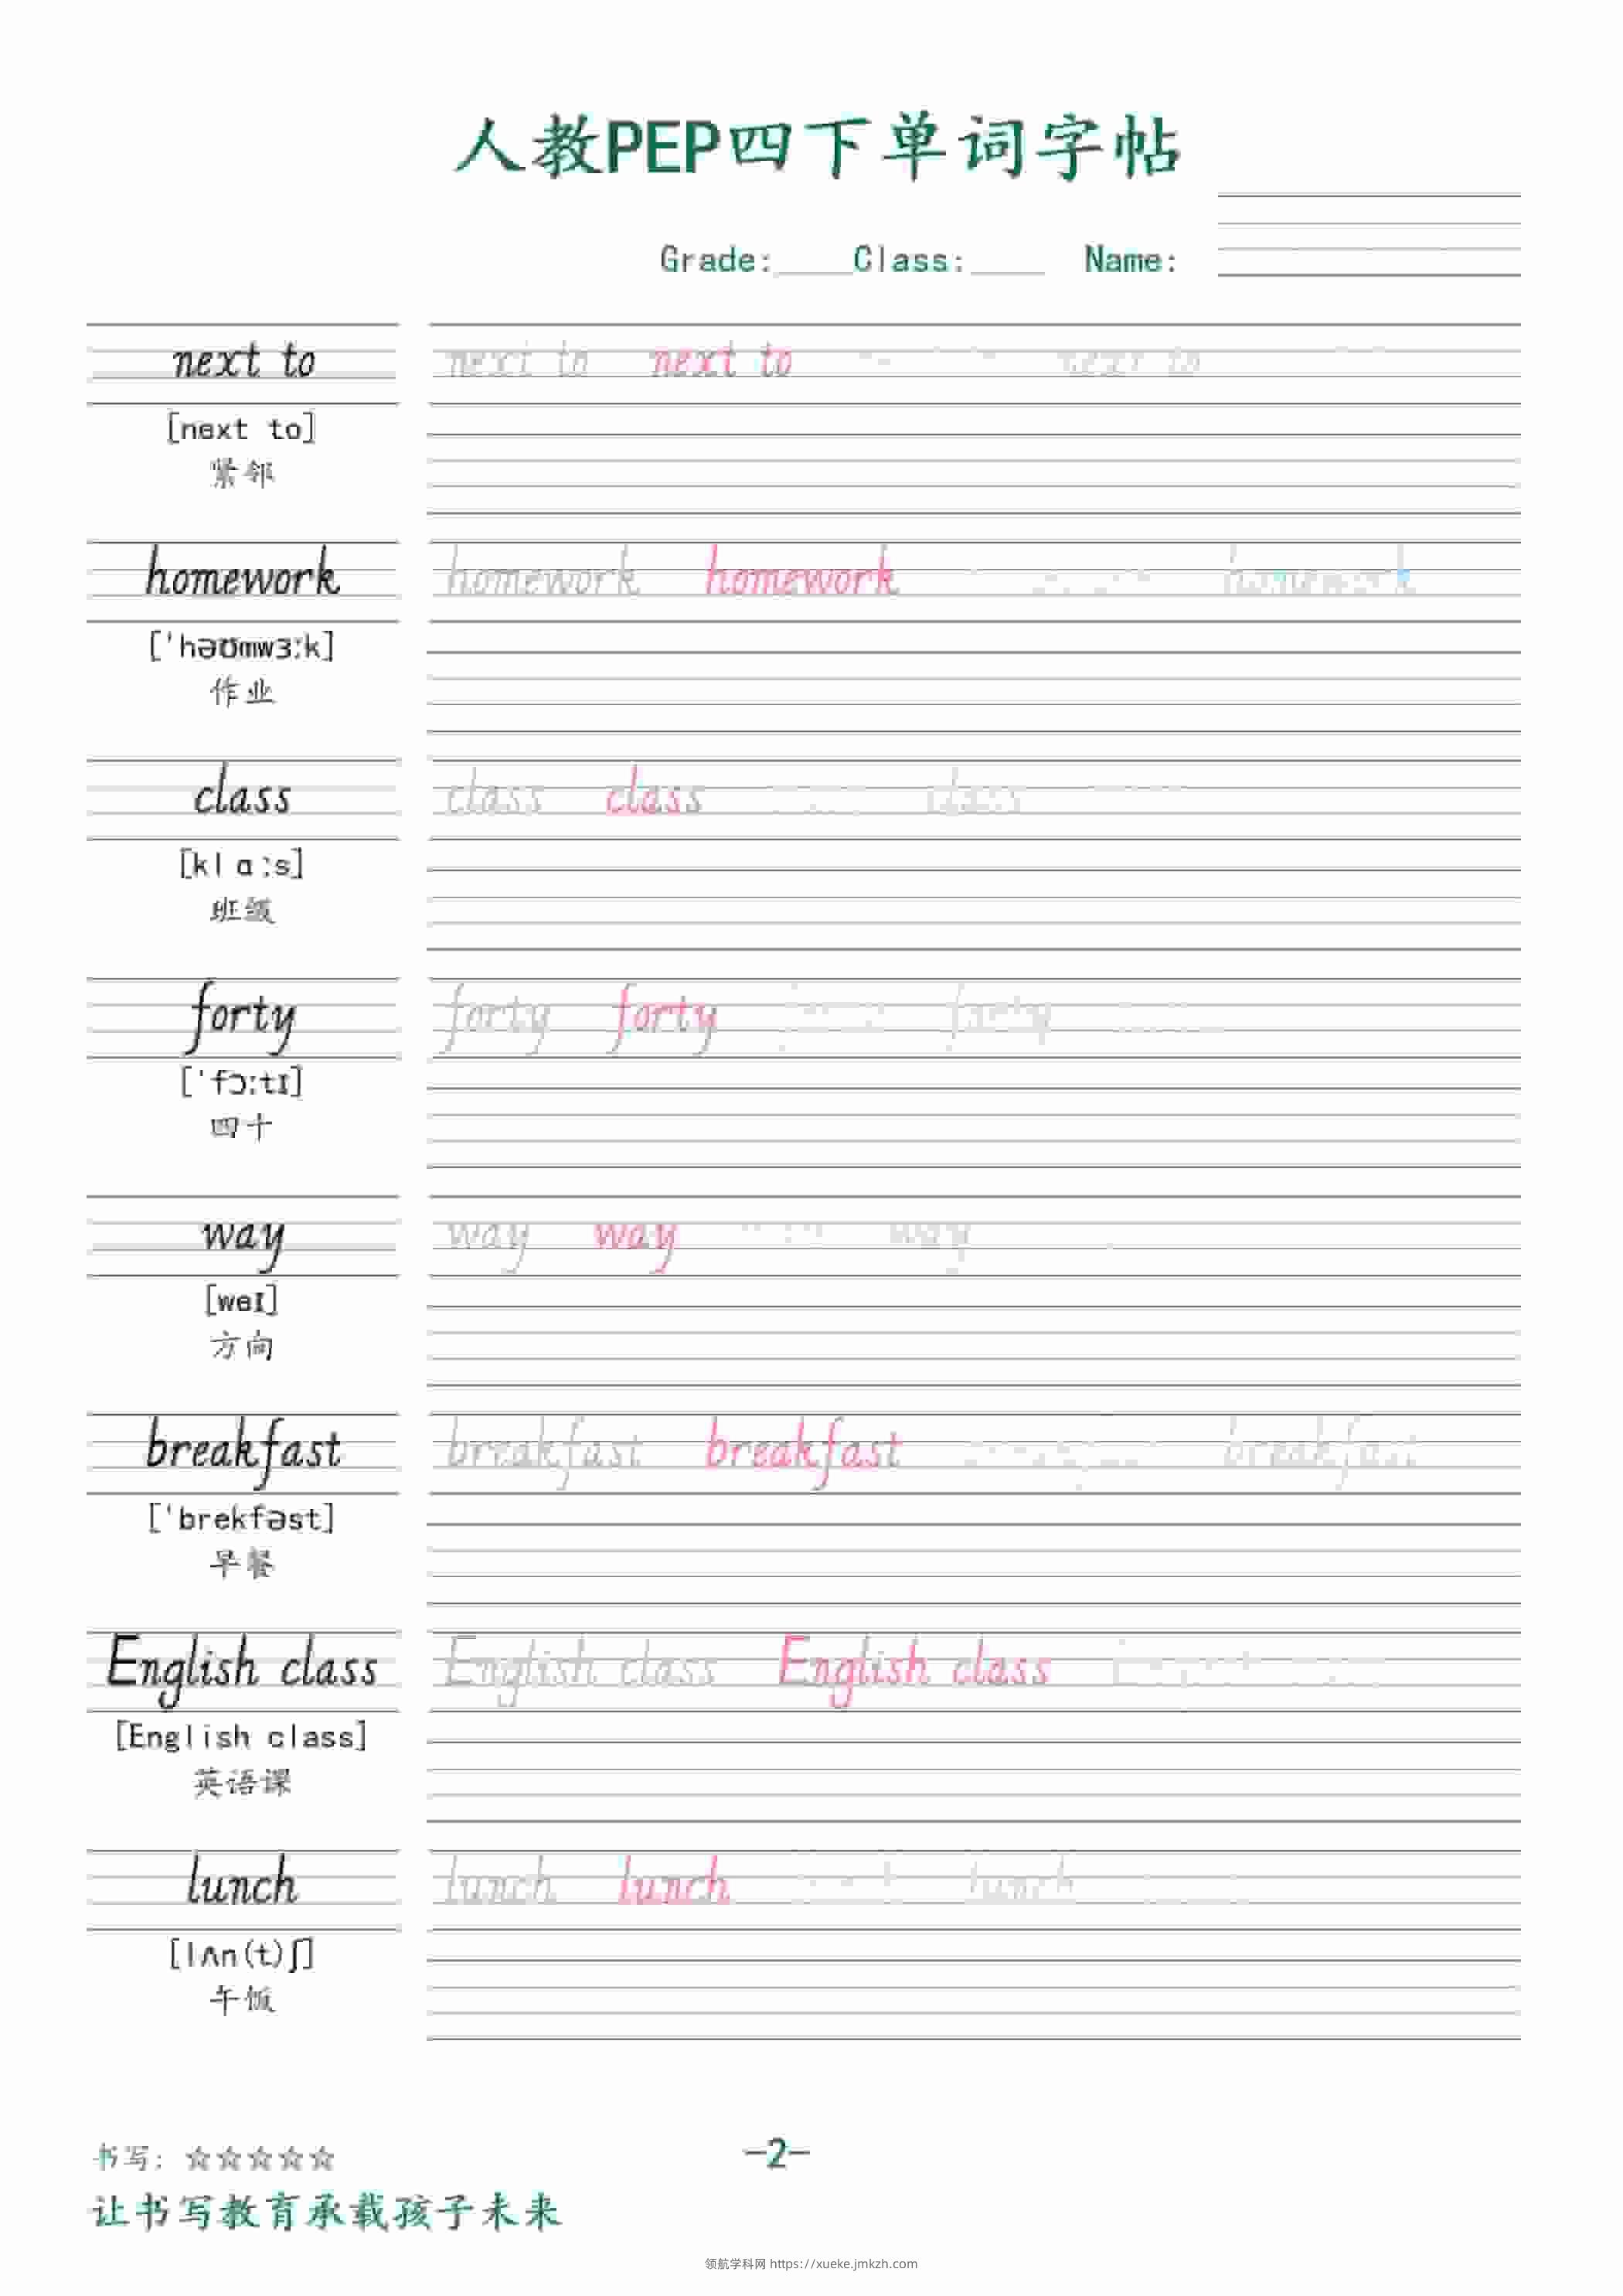 人教PEP四下单词字帖
Grade:____Class:____ Name:
next to next to next to next to
[next to]
紧邻
homework homework homework homework
['həʊmwɜːk]
作业
class class class class
[klɑːs]
班级
forty forty forty forty
['fɔːtɪ]
四十
way way way way
[weɪ]
方向
breakfast breakfast breakfast breakfast
['brekfəst]
早餐
English class English class English class
[English class]
英语课
lunch lunch lunch lunch
[lʌn(t)ʃ]
午饭
书写：☆☆☆☆☆
-2-
让书写教育承载孩子未来
领航学科网 https://xueke.jmkzh.com